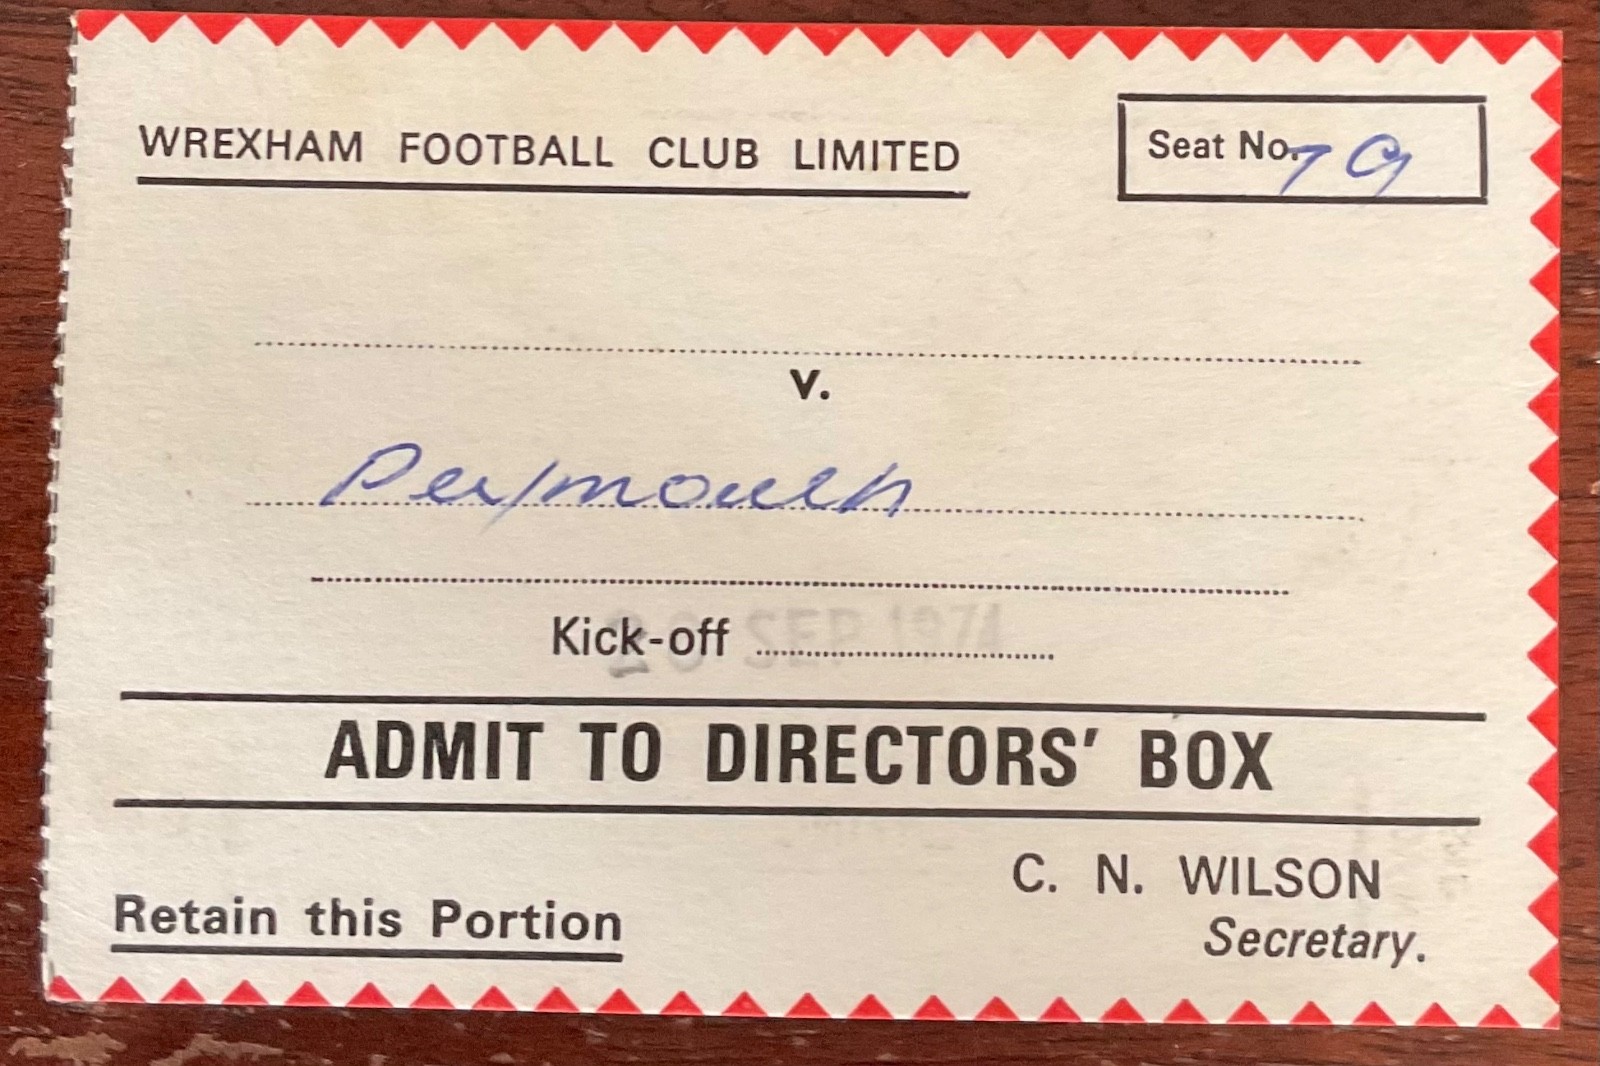 WREXHAM FOOTBALL CLUB LIMITED
Seat No. 79
v.
Plymouth
Kick-off
SEP 1974
ADMIT TO DIRECTORS' BOX
C. N. WILSON
Secretary.
Retain this Portion